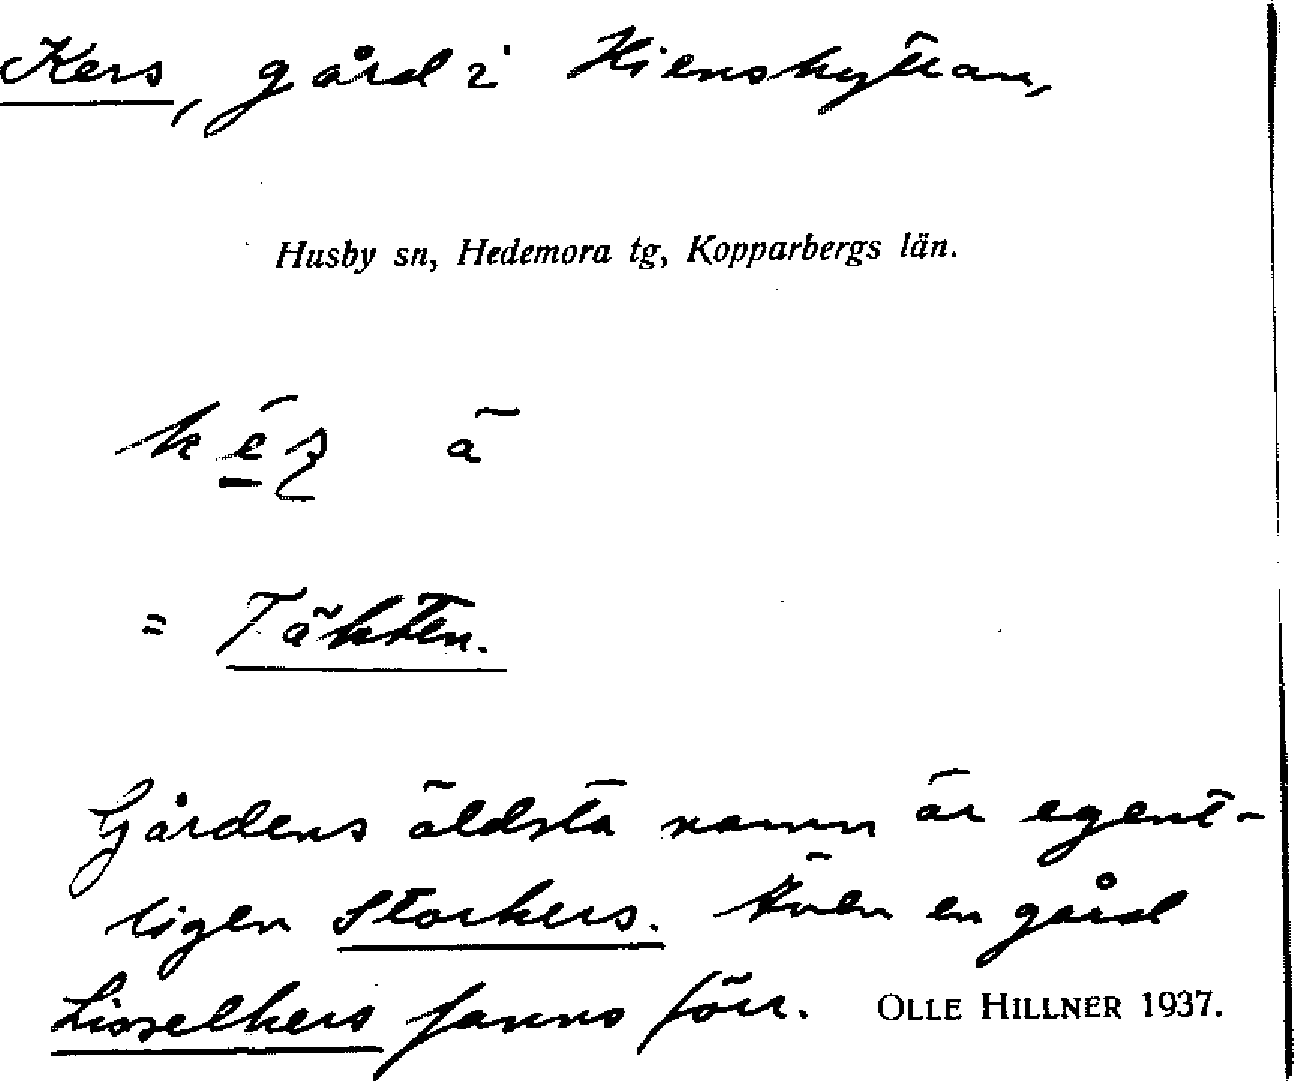 Kers, gård i Hienshyttan,
Husby sn, Hedemora tg, Kopparbergs län.
kés ä
= Täkten.
Gårdens äldsta namn är egent-
ligen Storkers. Även en gård
Lisselkers fanns förr. OLLE HILLNER 1937.